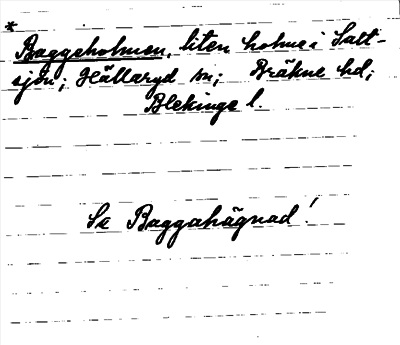 *
Baggeholmen, liten holme i Salt-
sjön; Hällaryd sn; Bräkne hd;
Blekinge l.
Se Baggahägnad!